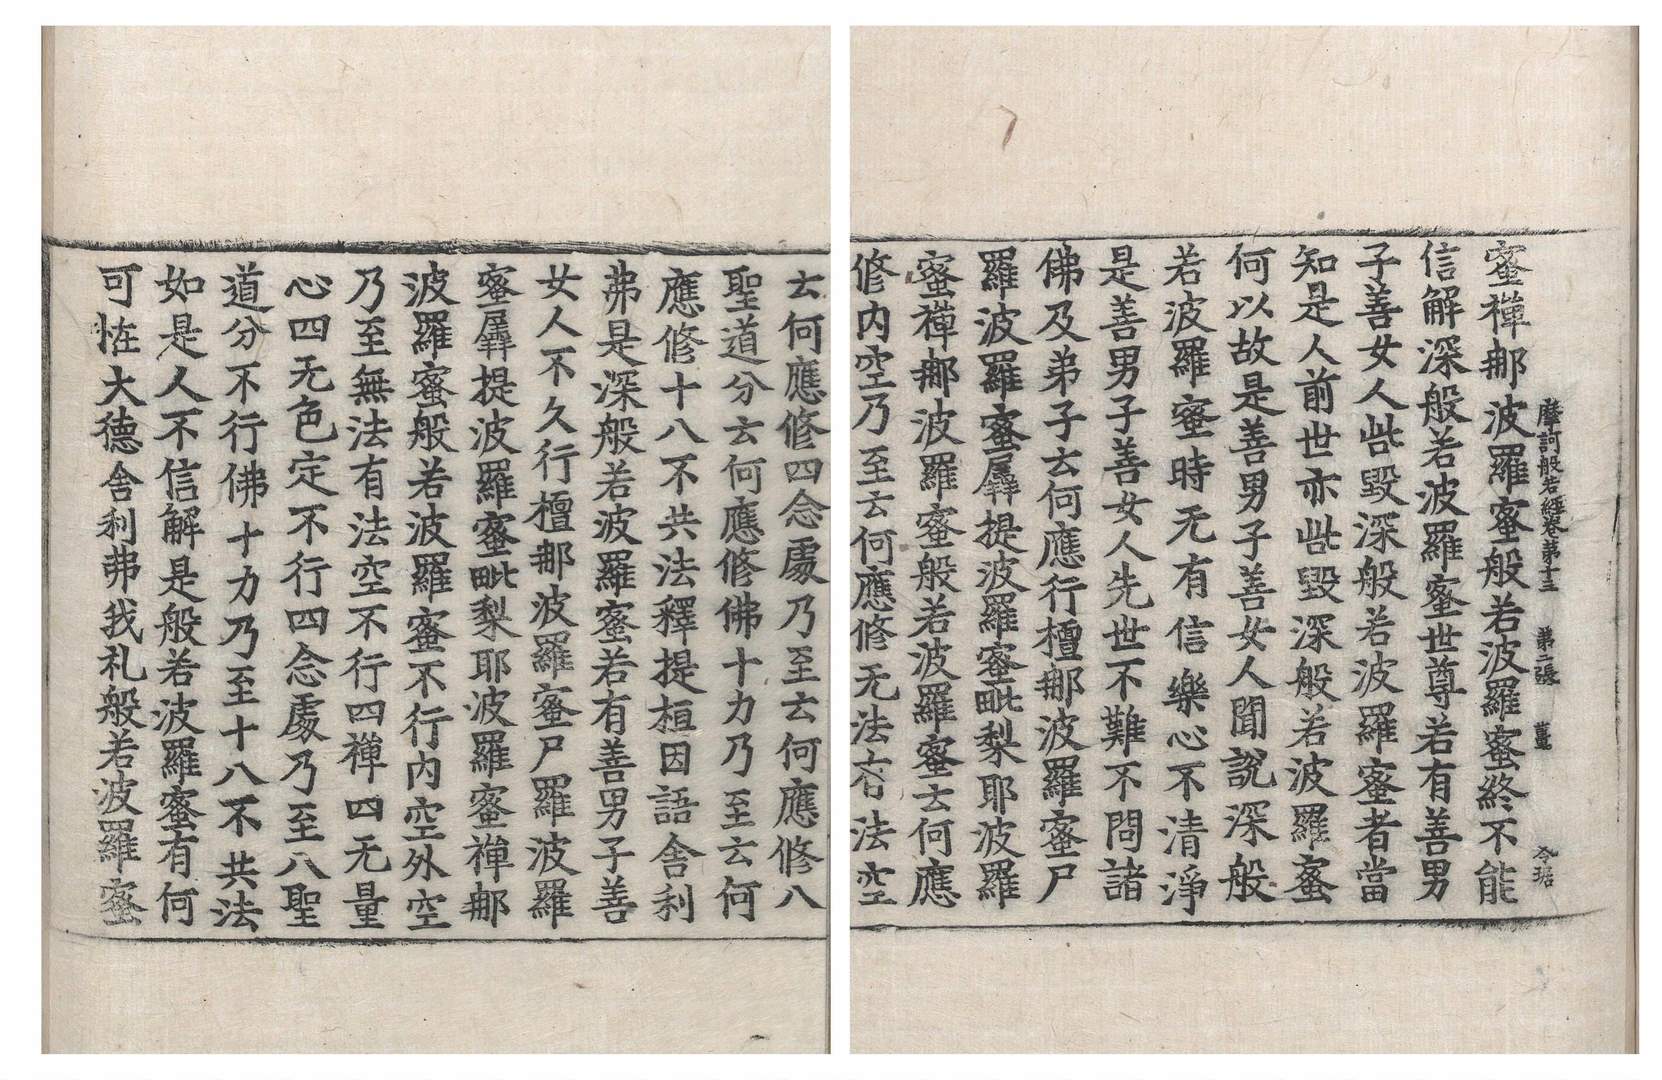 摩訶般若經卷第十三　第二張　薑　令琚
蜜禪那波羅蜜般若波羅蜜終不能
信解深般若波羅蜜世尊若有善男
子善女人呰毀深般若波羅蜜者當
知是人前世亦呰毀深般若波羅蜜
何以故是善男子善女人聞說深般
若波羅蜜時无有信樂心不清淨
是善男子善女人先世不難不問諸
佛及弟子云何應行檀那波羅蜜尸
羅波羅蜜羼提波羅蜜毗梨耶波羅
蜜禪那波羅蜜般若波羅蜜云何應
修內空乃至云何應修无法有法空
云何應修四念處乃至云何應修八
聖道分云何應修佛十力乃至云何
應修十八不共法釋提桓因語舍利
弗是深般若波羅蜜若有善男子善
女人不久行檀那波羅蜜尸羅波羅
蜜羼提波羅蜜毗梨耶波羅蜜禪那
波羅蜜般若波羅蜜不行內空外空
乃至無法有法空不行四禪四无量
心四无色定不行四念處乃至八聖
道分不行佛十力乃至十八不共法
如是人不信解是般若波羅蜜有何
可恠大德舍利弗我礼般若波羅蜜